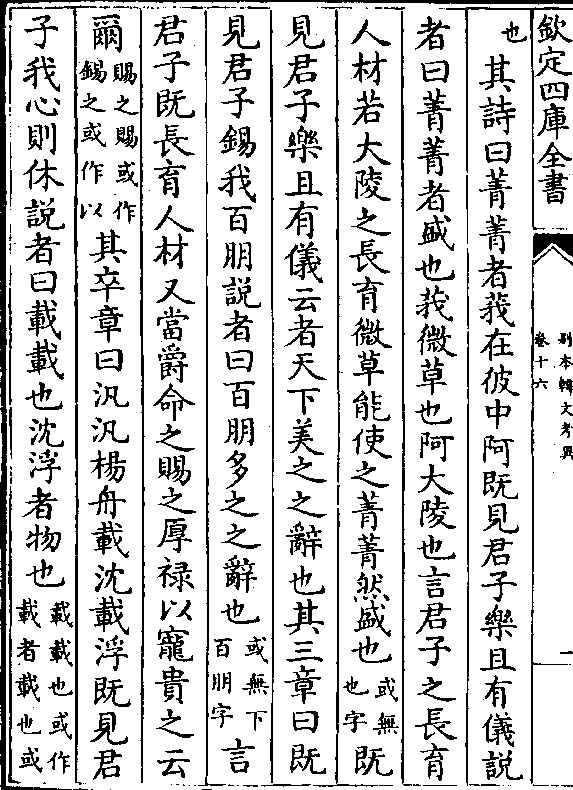 欽定四庫全書
別本韓文考異
卷十六
一
也其詩曰菁菁者莪在彼中阿既見君子樂且有儀説
者曰菁菁者盛也莪微草也阿大陵也言君子之長育
人材若大陵之長育微草能使之菁菁然盛也或無也字既
見君子樂且有儀云者天下美之之辭也其三章曰既
見君子錫我百朋説者曰百朋多之之辭也或無下百朋字言
君子既長育人材又當爵命之賜之厚禄以寵貴之云
爾賜之賜或作錫之或作以其卒章曰汎汎楊舟載沈載浮既見君
子我心則休説者曰載載也沈浮者物也載載也或作載者載也或